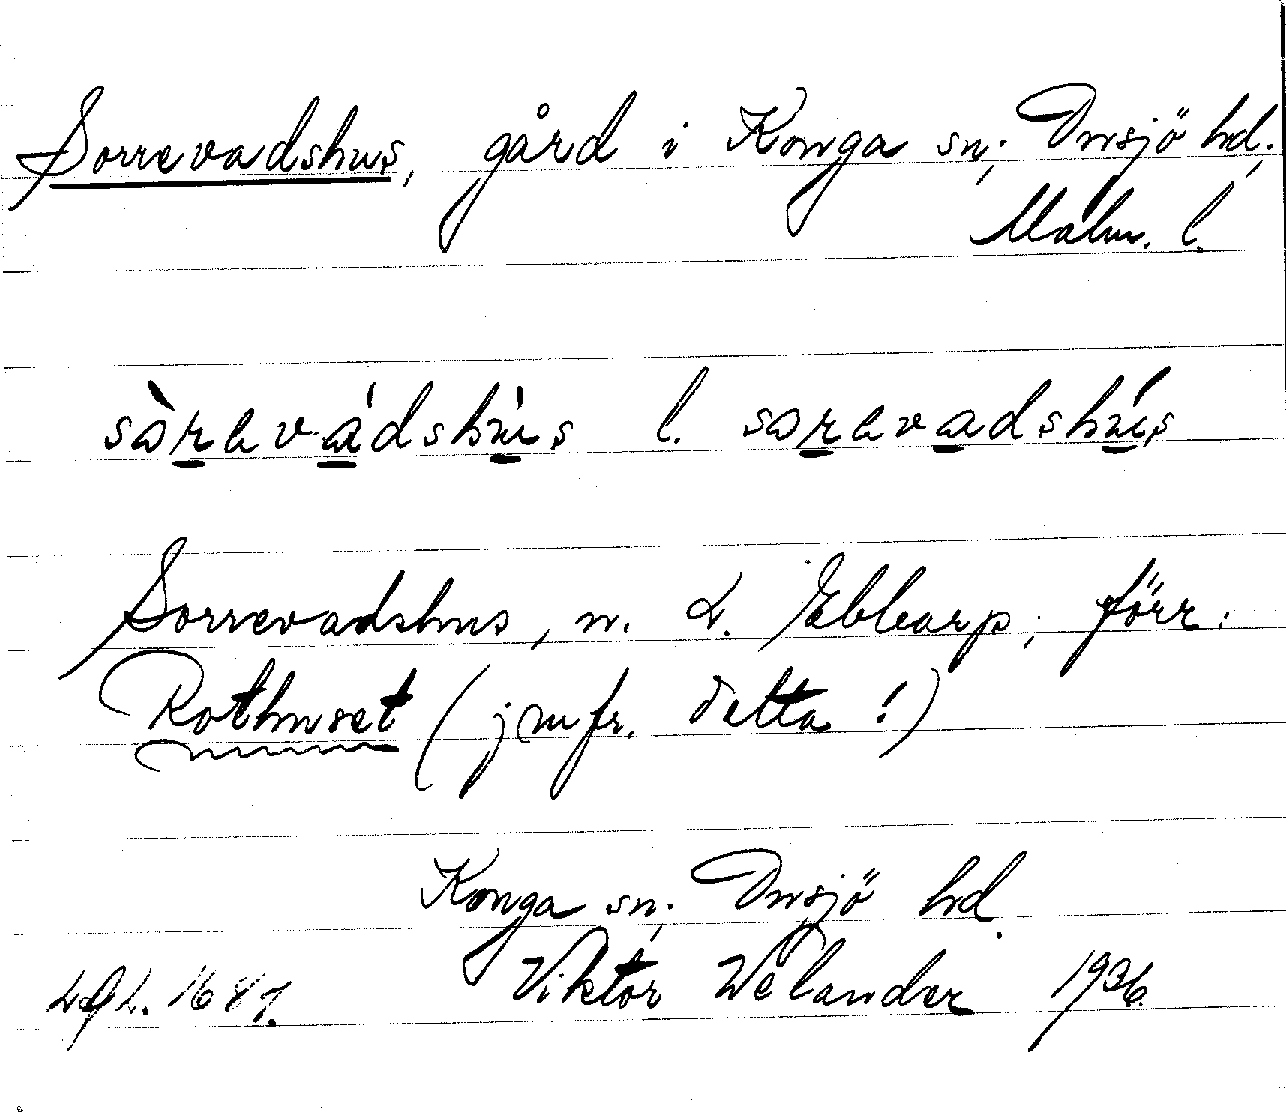 Sorrevadshus, gård i Konga sn; Onsjö hd.
Malm. l.
sàrevádshùs l. sarevadshús
Sorrevadshus, n. L. Ebbarp; förr:
Rothuset (jmfr. detta!)
Konga sn; Onsjö hd.
Viktor Welander 1936.
1687.